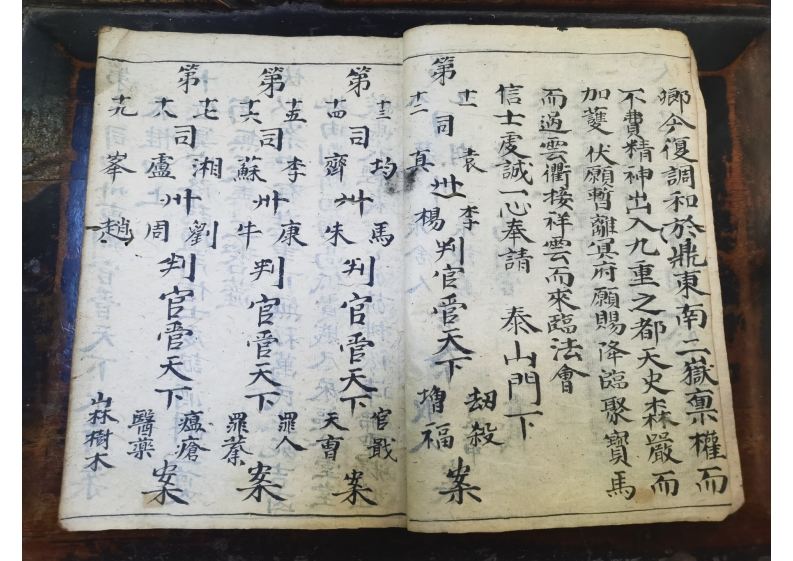 鄉今復調和於鼎東南二嶽稟權而
不費精神出入九重之都天史森嚴而
加護伏願暫離冥府願賜降臨聚寶馬
而過雲衢接祥雲而來臨法會
信士虔誠一心奉請 泰山門下
十一 袁 李 劫殺
第 司 州 判官管天下 案
十二 真 楊 增福
十三 均 馬 官戩
第 司 州 判官管天下 案
十四 齊 朱 天曹
十五 李 康 罪人
第 司 州 判官管天下 案
十六 蘇 牛 罪
十七 湘 劉 瘟瘡
第 司 州 判官管天下 案
十八 盧 周 醫藥
十九 峯 趙 山林樹木